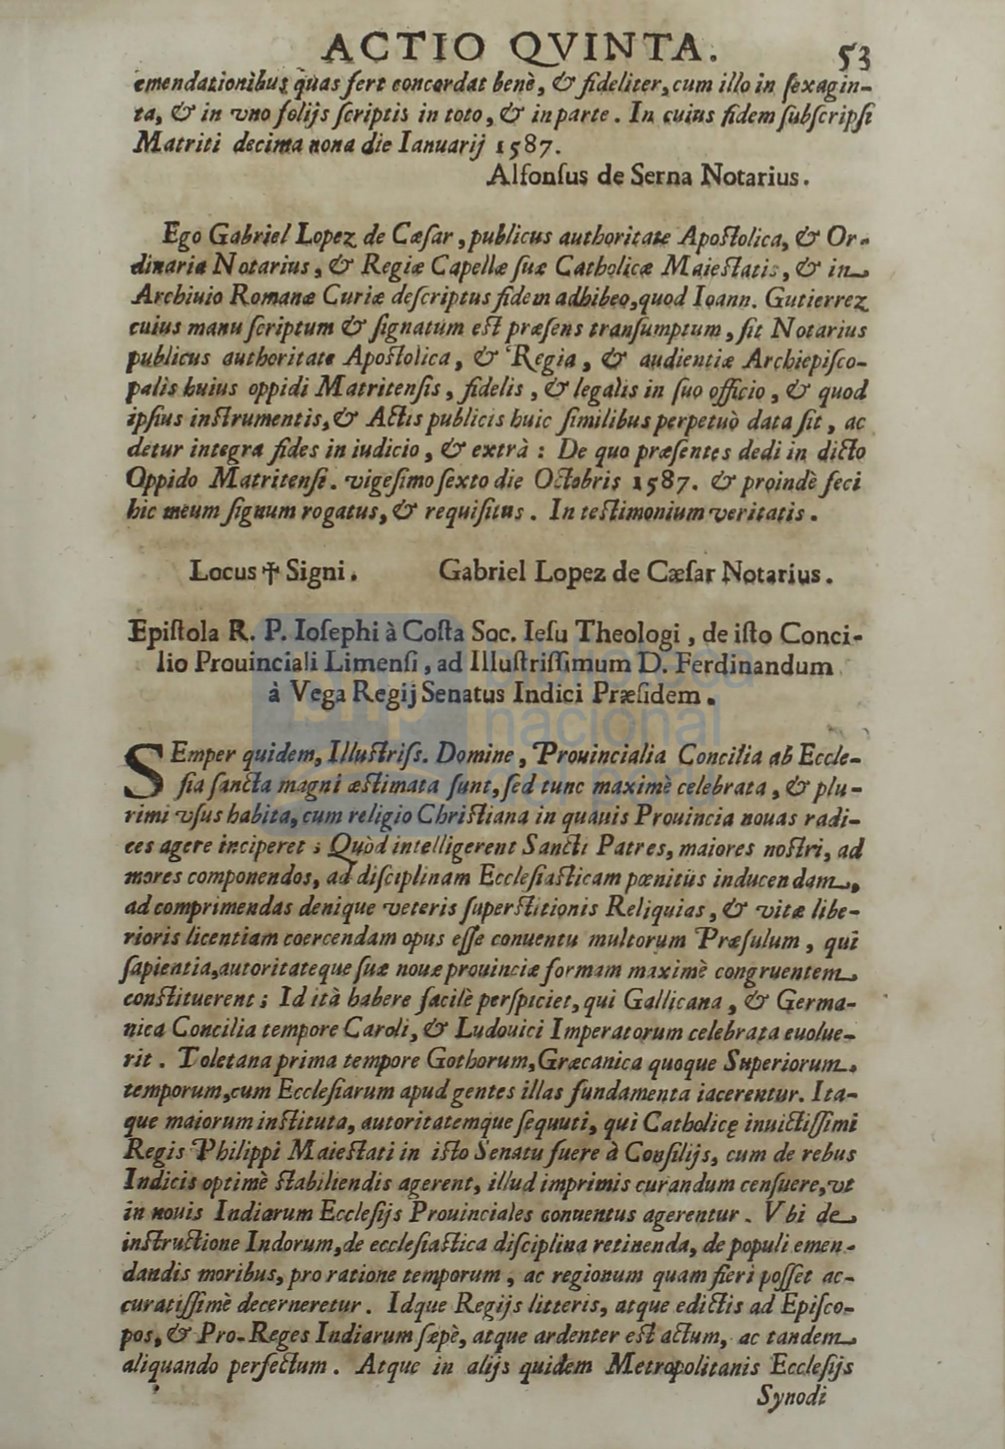 ACTIO QVINTA. 53
emendationibus quas fert concordat benè, & fideliter, cum illo in ſexagin-
ta, & in vno folijs ſcriptis in toto, & in parte. In cuius fidem ſubſcripſi
Matriti decima nona die Ianuarij 1587.
Alfonſus de Serna Notarius.
Ego Gabriel Lopez de Cæſar, publicus authoritate Apoſtolica, & Or-
dinaria Notarius, & Regiæ Capellæ ſuæ Catholicæ Maieſtatis, & in
Archiuio Romanæ Curiæ deſcriptus fidem adhibeo, quod Ioann. Gutierrez
cuius manu ſcriptum & ſignatum eſt præſens tranſumptum, ſit Notarius
publicus authoritate Apoſtolica, & Regia, & audientiæ Archiepiſco-
palis huius oppidi Matritenſis, fidelis, & legalis in ſuo officio, & quod
ipſius inſtrumentis, & Actis publicis huic ſimilibus perpetuò data ſit, ac
detur integra fides in iudicio, & extrà: De quo præſentes dedi in dicto
Oppido Matritenſi. vigeſimo ſexto die Octobris 1587. & proindè feci
hic meum ſignum rogatus, & requiſitus. In teſtimonium veritatis.
Locus ☥ Signi. Gabriel Lopez de Cæſar Notarius.
Epiſtola R. P. Ioſephi à Coſta Soc. Ieſu Theologi, de iſto Conci-
lio Prouinciali Limenſi, ad Illuſtriſſimum D. Ferdinandum
à Vega Regij Senatus Indici Præſidem.
SEmper quidem, Illuſtriſs. Domine, Prouincialia Concilia ab Eccle-
ſia ſancta magni æſtimata ſunt, ſed tunc maximè celebrata, & plu-
rimi vſus habita, cum religio Chriſtiana in quauis Prouincia nouas radi-
ces agere inciperet; Quòd intelligerent Sancti Patres, maiores noſtri, ad
mores componendos, ad diſciplinam Eccleſiaſticam pœnitùs inducendam,
ad comprimendas denique veteris ſuperſtitionis Reliquias, & vitæ libe-
rioris licentiam coercendam opus eſſe conuentu multorum Præſulum, qui
ſapientia, autoritateque ſuæ nouæ prouinciæ formam maximè congruentem
conſtituerent; Id ità habere facilè perſpiciet, qui Gallicana, & Germa-
nica Concilia tempore Caroli, & Ludouici Imperatorum celebrata euolue-
rit. Toletana prima tempore Gothorum, Græcanica quoque Superiorum
temporum, cum Eccleſiarum apud gentes illas fundamenta iacerentur. Ita-
que maiorum inſtituta, autoritatemque ſequuti, qui Catholicę inuictiſſimi
Regis Philippi Maieſtati in iſto Senatu fuere à Conſilijs, cum de rebus
Indicis optimè ſtabiliendis agerent, illud imprimis curandum cenſuere, vt
in nouis Indiarum Eccleſijs Prouinciales conuentus agerentur. Vbi de
inſtructione Indorum, de eccleſiaſtica diſciplina retinenda, de populi emen-
dandis moribus, pro ratione temporum, ac regionum quam fieri poſſet ac-
curatiſſimè decerneretur. Idque Regijs litteris, atque edictis ad Epiſco-
pos, & Pro-Reges Indiarum ſæpè, atque ardenter eſt actum, ac tandem
aliquando perfectum. Atque in alijs quidem Metropolitanis Eccleſijs
Synodi